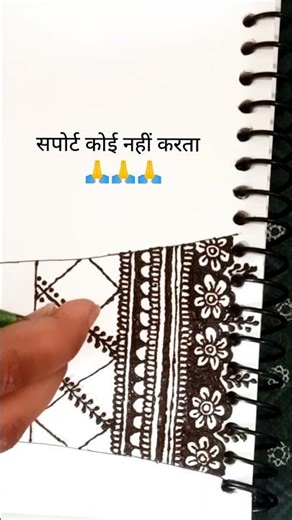 सपोर्ट कोई नहीं करता
🙏🙏🙏